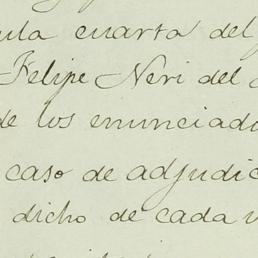 ula cuarta del
Felipe Neri del
de los enunciado
caso de adjudic
dicho de cada v